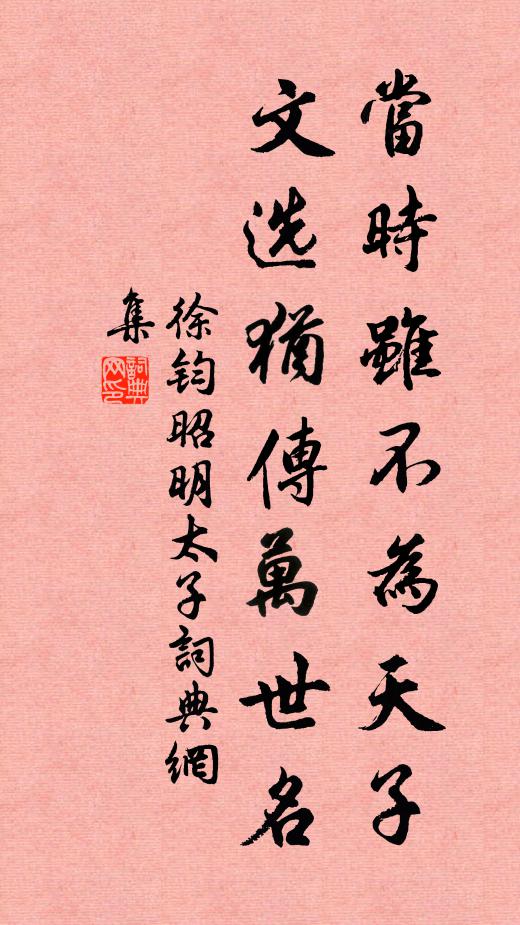 當時雖不為天子
文选猶傳萬世名
徐鈞昭明太子詞典網
集
詞典網印